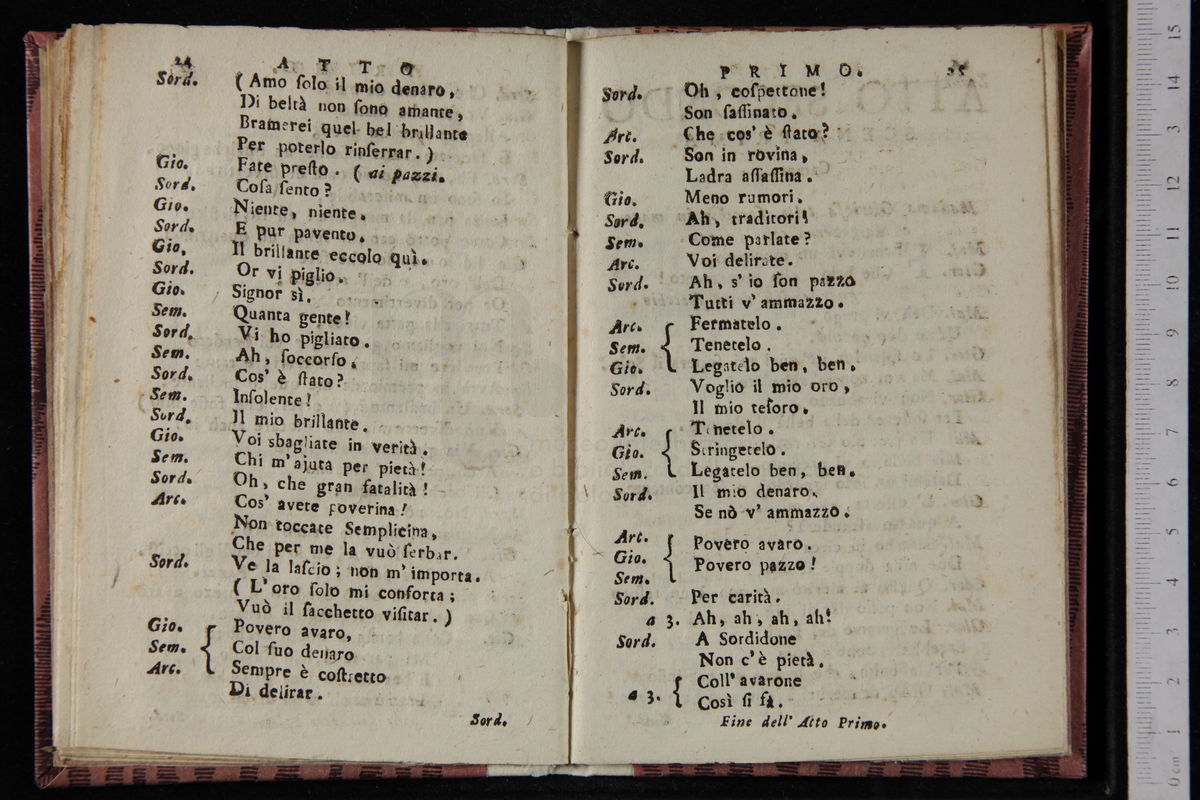 24 ATTO
Sord. (Amo ſolo il mio denaro,
Di beltà non ſono amante,
Bramerei quel bel brillante
Per poterlo rinſerrar.)
Gio. Fate preſto. (ai pazzi.
Sord. Coſa ſento?
Gio. Niente, niente.
Sord. E pur pavento.
Gio. Il brillante eccolo quì.
Sord. Or vi piglio.
Gio. Signor sì.
Sem. Quanta gente!
Sord. Vi ho pigliato.
Sem. Ah, ſoccorſo.
Sord. Cos' è ſtato?
Sem. Inſolente!
Sord. Il mio brillante.
Gio. Voi sbagliate in verità.
Sem. Chi m' ajuta per pietà!
Sord. Oh, che gran fatalità!
Arc. Cos' avete poverina!
Non toccate Semplicina,
Che per me la vuò ſerbar.
Sord. Ve la laſcio; non m' importa.
(L' oro ſolo mi conforta;
Vuò il ſacchetto viſitar.)
Gio. Povero avaro,
Sem. Col ſuo denaro
Arc. Sempre è coſtretto
Di delirar.
Sord.
PRIMO. 25
Sord. Oh, coſpettone!
Son ſaſſinato.
Arc. Che cos' è ſtato?
Sord. Son in rovina,
Ladra aſſaſſina.
Gio. Meno rumori.
Sord. Ah, traditori!
Sem. Come parlate?
Arc. Voi delirate.
Sord. Ah, s' io ſon pazzo
Tutti v' ammazzo.
Arc. Fermatelo.
Sem. Tenetelo.
Gio. Legatelo ben, ben.
Sord. Voglio il mio oro,
Il mio teſoro.
Arc. Tenetelo.
Gio. Stringetelo.
Sem. Legatelo ben, ben.
Sord. Il mio denaro.
Se nò v' ammazzo.
Arc. Povero avaro.
Gio. Povero pazzo!
Sem.
Sord. Per carità.
a 3. Ah, ah, ah, ah!
Sord. A Sordidone
Non c' è pietà.
a 3. Coll' avarone
Così ſi fa.
Fine dell' Atto Primo.
0 cm 1 2 3 4 5 6 7 8 9 10 11 12 13 14 15